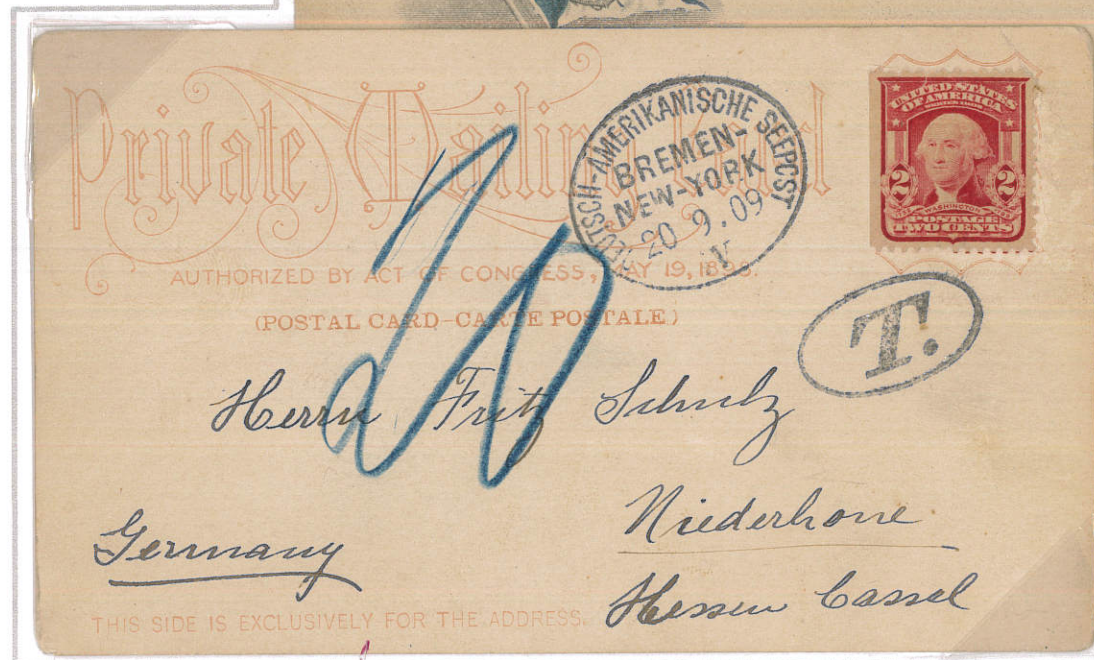 Private Mailing Card
AUTHORIZED BY ACT OF CONGRESS, MAY 19, 1898.
(POSTAL CARD-CARTE POSTALE)
DEUTSCH-AMERIKANISCHE SEEPOST
BREMEN-
NEW-YORK
20.9.09
V
UNITED STATES
OF AMERICA
2 2
WASHINGTON
POSTAGE
TWO CENTS
T.
20
Herrn Fritz Schulz
Niederhone
Germany
Hessen Cassel
THIS SIDE IS EXCLUSIVELY FOR THE ADDRESS.